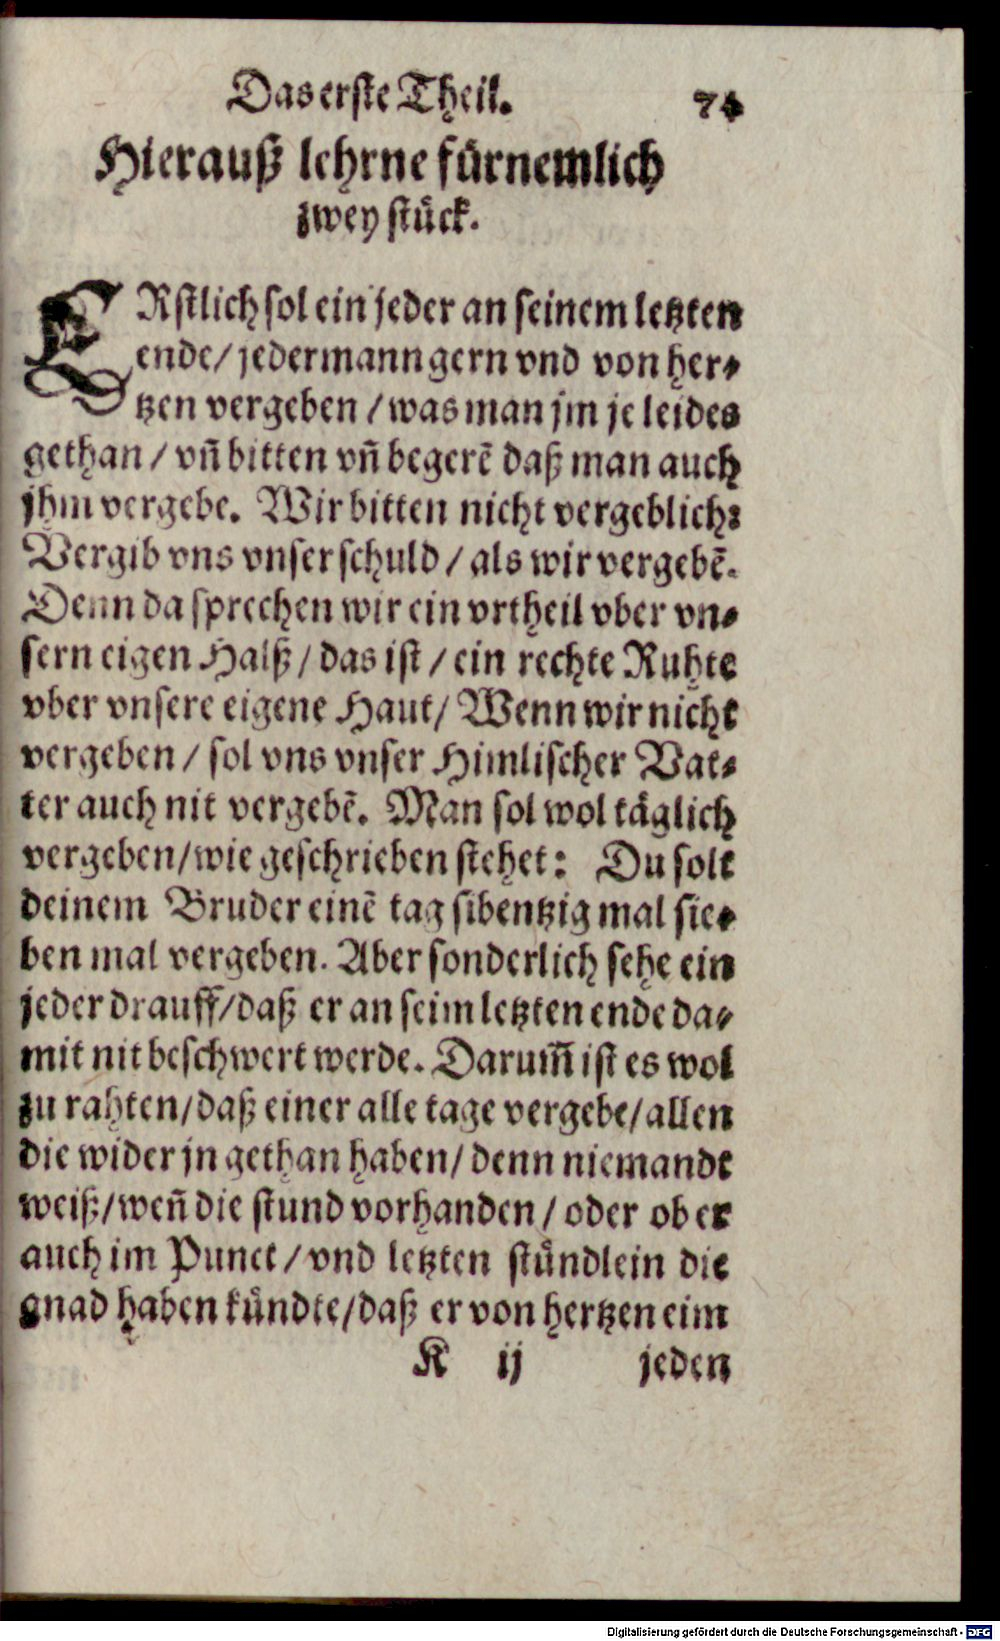 Das erste Theil. 74
Hierauß lehrne fürnemlich
zwey stück.
ERstlich sol ein jeder an seinem letzten
ende/ jedermann gern vnd von her-
tzen vergeben / was man jm je leides
gethan / vñ bitten vñ begerẽ daß man auch
jhm vergebe. Wir bitten nicht vergeblich:
Vergib vns vnser schuld / als wir vergebẽ.
Denn da sprechen wir ein vrtheil vber vn-
sern eigen Halß / das ist / ein rechte Ruhte
vber vnsere eigene Haut/ Wenn wir nicht
vergeben / sol vns vnser Himlischer Vat-
ter auch nit vergebẽ. Man sol wol täglich
vergeben/wie geschrieben stehet: Du solt
deinem Bruder einẽ tag sibentzig mal sie-
ben mal vergeben. Aber sonderlich sehe ein
jeder drauff/daß er an seim letzten ende da-
mit nit beschwert werde. Darum̃ ist es wol
zu rahten/daß einer alle tage vergebe/allen
die wider jn gethan haben/ denn niemandt
weiß/weñ die stund vorhanden / oder ob er
auch im Punct / vnd letzten stündlein die
gnad haben kündte/daß er von hertzen eim
K ij jeden
Digitalisierung gefördert durch die Deutsche Forschungsgemeinschaft - DFG